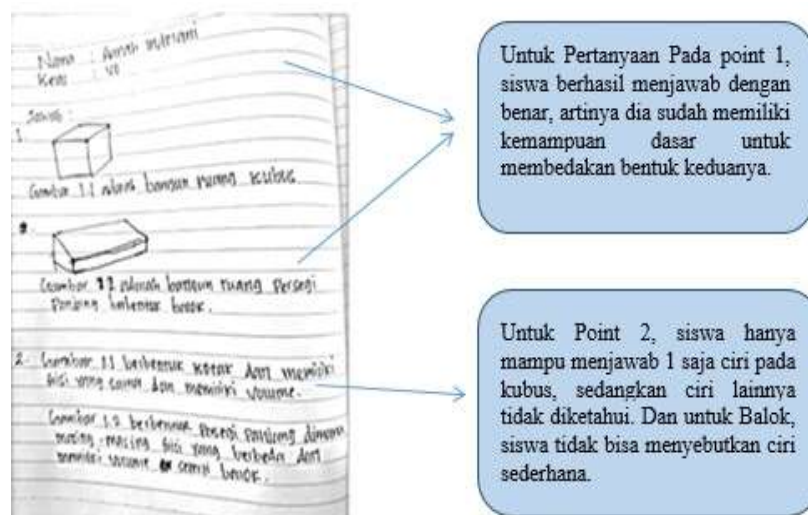 Nama :
Kelas : VI
Jawab :
1.
Gambar 1.1 adalah bangun ruang kubus.
Gambar 1.2 adalah bangun ruang Persegi
Panjang berbentuk balok.
2. Gambar 1.1 berbentuk kotak dan memiliki
sisi yang sama dan memiliki volume.
Gambar 1.2 berbentuk Persegi Panjang dimana
masing-masing sisi yang berbeda dan
memiliki volume
Untuk Pertanyaan Pada point 1,
siswa berhasil menjawab dengan
benar, artinya dia sudah memiliki
kemampuan dasar untuk
membedakan bentuk keduanya.
Untuk Point 2, siswa hanya
mampu menjawab 1 saja ciri pada
kubus, sedangkan ciri lainnya
tidak diketahui. Dan untuk Balok,
siswa tidak bisa menyebutkan ciri
sederhana.